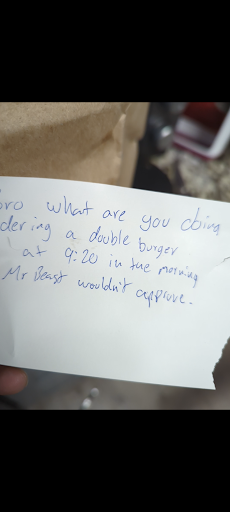 bro what are you doing
dering a double burger
at 9:20 in the morning
Mr Beast wouldn't approve.